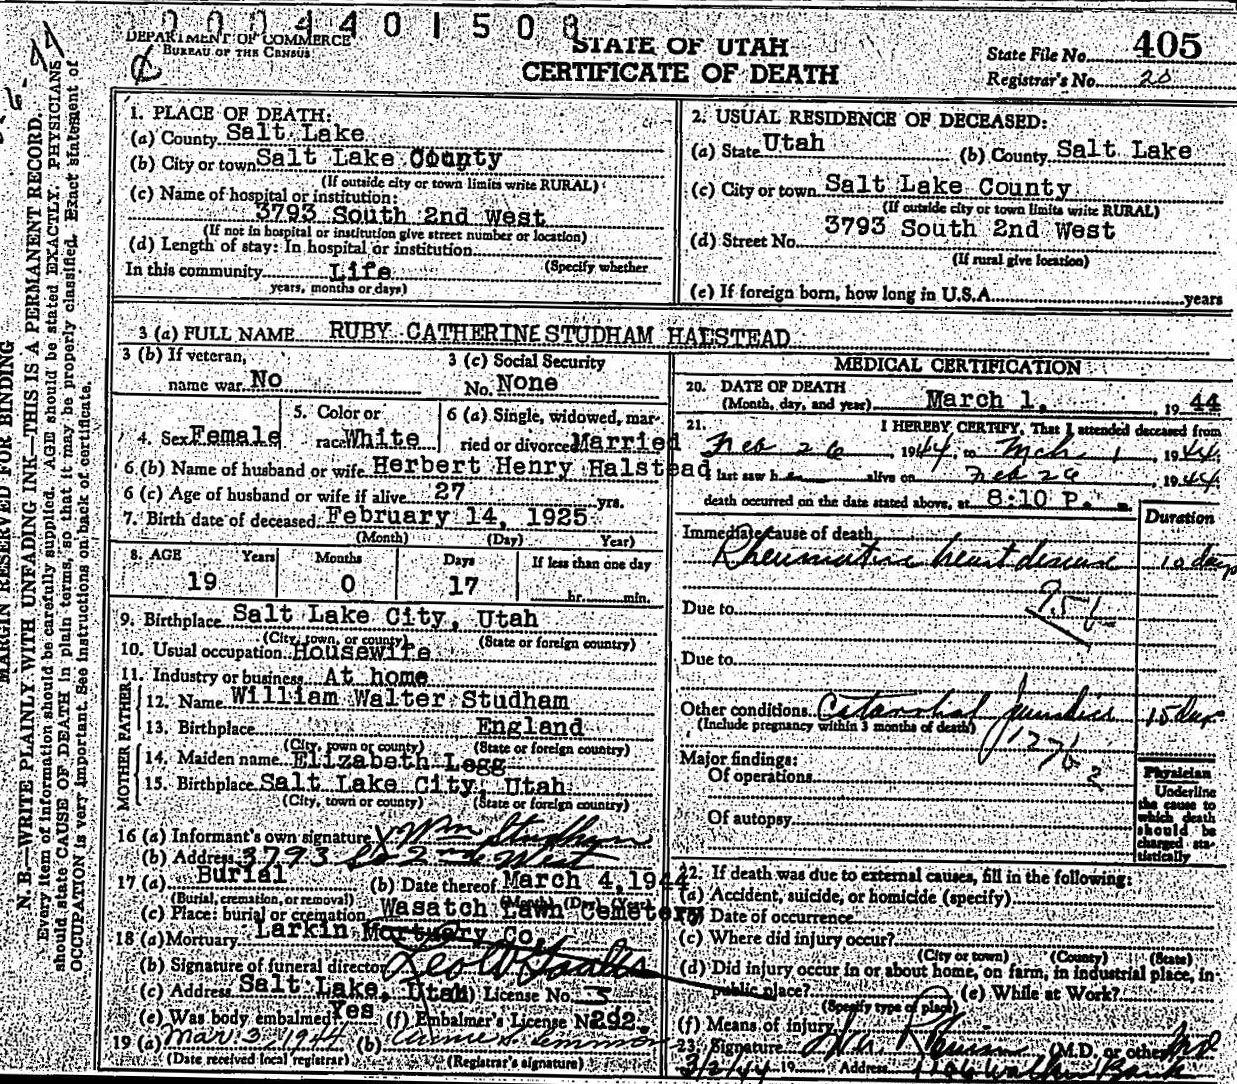 2004401508
DEPARTMENT OF COMMERCE
BUREAU OF THE CENSUS
STATE OF UTAH
CERTIFICATE OF DEATH
State File No. 405
Registrar's No. 20
MARGIN RESERVED FOR BINDING
N. B.—WRITE PLAINLY WITH UNFADING INK—THIS IS A PERMANENT RECORD.
Every item of information should be carefully supplied. AGE should be stated EXACTLY. PHYSICIANS
should state CAUSE OF DEATH in plain terms, so that it may be properly classified. Exact statement of
OCCUPATION is very important. See instructions on back of certificate.
1. PLACE OF DEATH:
(a) County Salt Lake
(b) City or town Salt Lake County
(If outside city or town limits write RURAL)
(c) Name of hospital or institution:
3793 South 2nd West
(If not in hospital or institution give street number or location)
(d) Length of stay: In hospital or institution
(Specify whether
In this community Life
years, months or days)
2. USUAL RESIDENCE OF DECEASED:
(a) State Utah (b) County Salt Lake
(c) City or town Salt Lake County
(If outside city or town limits write RURAL)
(d) Street No. 3793 South 2nd West
(If rural give location)
(e) If foreign born, how long in U.S.A. years
3 (a) FULL NAME RUBY CATHERINE STUDHAM HALSTEAD
3 (b) If veteran,
name war No
3 (c) Social Security
No. None
4. Sex Female
5. Color or
race White
6 (a) Single, widowed, mar-
ried or divorced Married
6 (b) Name of husband or wife Herbert Henry Halstead
6 (c) Age of husband or wife if alive 27 yrs.
7. Birth date of deceased February 14, 1925
(Month) (Day) Year)
8. AGE Years Months Days If less than one day
19 0 17 hr. min.
9. Birthplace Salt Lake City, Utah
(City, town, or county) (State or foreign country)
10. Usual occupation Housewife
11. Industry or business At home
FATHER
12. Name William Walter Studham
13. Birthplace England
(City, town or county) (State or foreign country)
MOTHER
14. Maiden name Elizabeth Legg
15. Birthplace Salt Lake City, Utah
(City, town or county) (State or foreign country)
16 (a) Informant's own signature X Wm Studham
(b) Address 3793 So 2nd West
17 (a) Burial (b) Date thereof March 4, 1944
(Burial, cremation, or removal) (Month) (Day) (Year)
(c) Place: burial or cremation Wasatch Lawn Cemetery
18 (a) Mortuary Larkin Mortuary Co,
(b) Signature of funeral director
(c) Address Salt Lake, Utah License No. 5
(e) Was body embalmed Yes (f) Embalmer's License No 292.
19 (a) Mar 3, 1944 (b)
(Date received local registrar) (Registrar's signature)
MEDICAL CERTIFICATION
20. DATE OF DEATH
(Month, day, and year) March 1, 19 44
21. I HEREBY CERTIFY, That I attended deceased from
Feb 26, 1944, to Mch 1, 1944
I last saw h alive on Feb 26, 1944
death occurred on the date stated above, at 8:10 P. m.
Duration
Immediate cause of death
Rheumatic heart disease 10 days
Due to
Due to
Other conditions Catarrhal jaundice 15 days
(Include pregnancy within 3 months of death)
Major findings:
Of operations
Of autopsy
Physician
Underline
the cause to
which death
should be
charged sta-
tistically
22. If death was due to external causes, fill in the following:
(a) Accident, suicide, or homicide (specify)
(b) Date of occurrence
(c) Where did injury occur?
(City or town) (County) (State)
(d) Did injury occur in or about home, on farm, in industrial place, in
public place? (e) While at Work?
(Specify type of place)
(f) Means of injury
23. Signature (M.D. or other) MD
3/2/44 19 Address Walker Bank